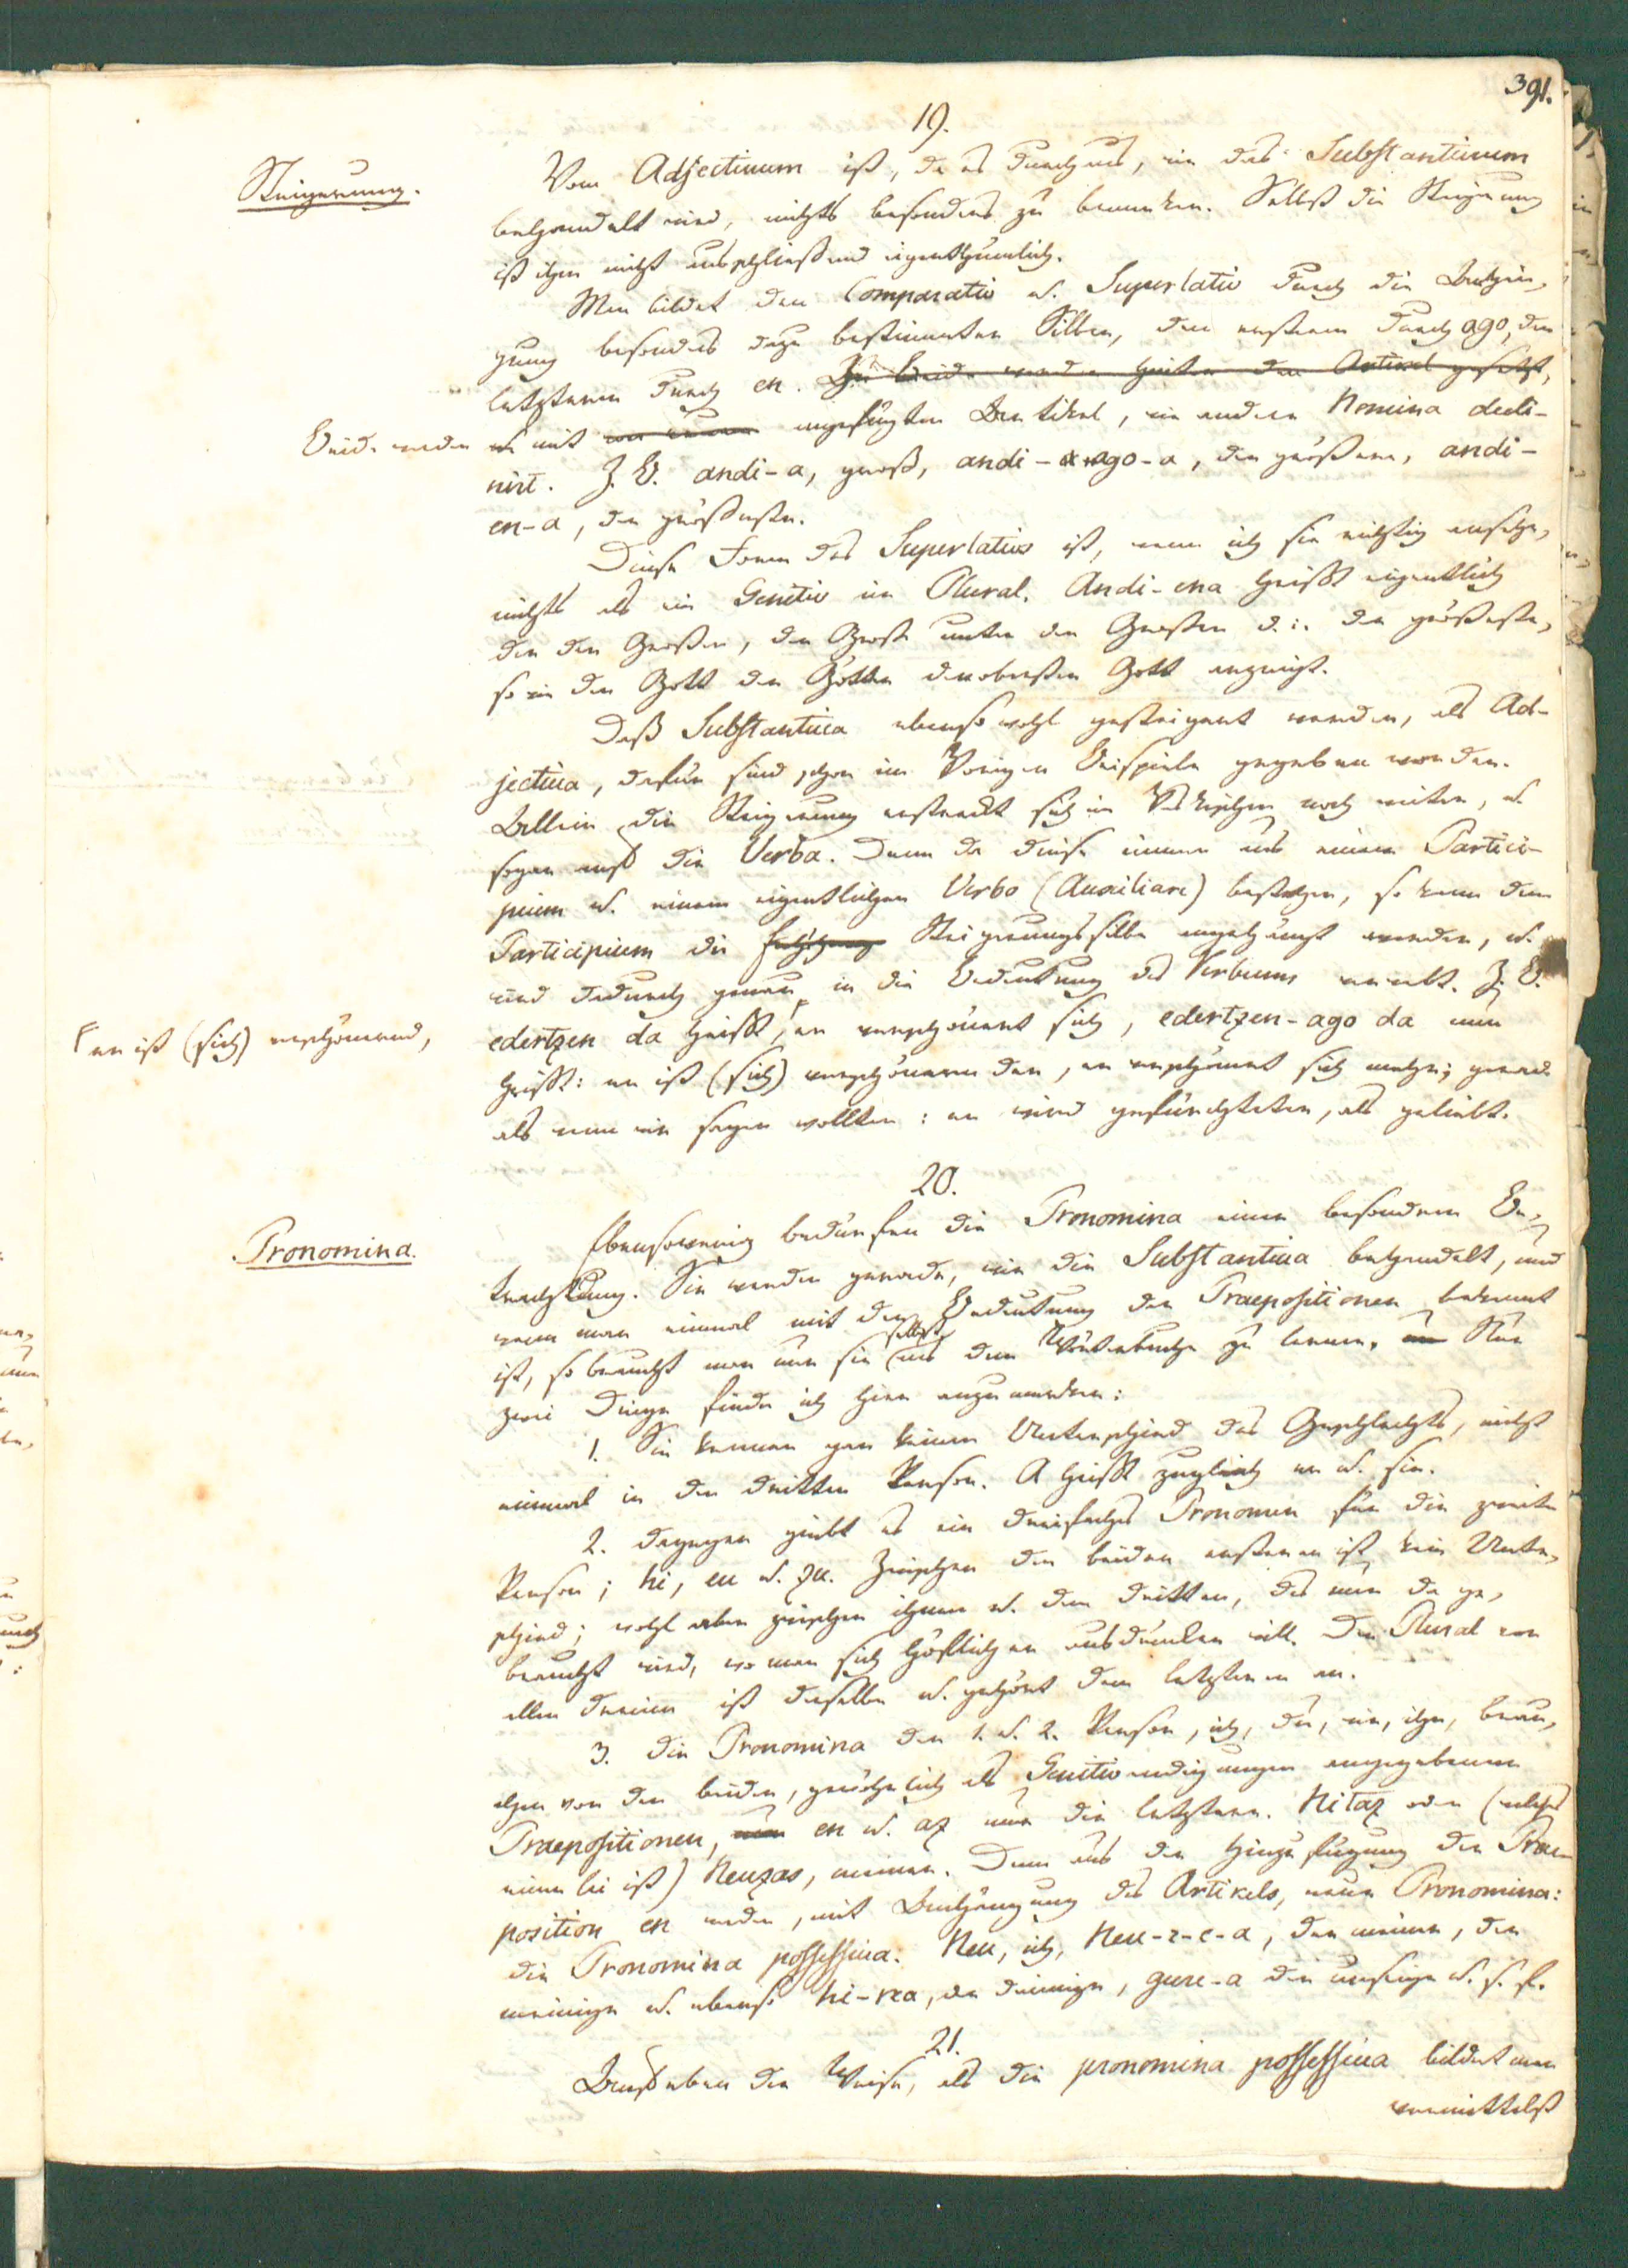 391.
19.
Steigerung.
Vom Adjectivum ist, da es durchaus, wie das Substantivum
behandelt wird, nichts besondres zu bemerken. Selbst die Steigerung
ist ihm nicht ausschließend eigenthümlich.
Man bildet den Comparativ u. Superlativ durch die Anhän-
gung besondrer dazu bestimmter Silben, den ersteren durch ago, den
letzteren durch en. Zu beide werden hinten der Artikel gesetzt,
Beide werden
u. mit angefügten Artikel, wie andere Nomina decli-
nirt. Z. B. andi-a, groß, andi-ago-a, der größere, andi-
en-a, der größeste.
Diese Form des Superlativs ist, wenn ich sie richtig ansehe,
nichts als ein Genitiv im Plural. Andi-ena heißt eigentlich
der der Großen, der Große unter den Großen d. i. der größeste,
so wie der Gott der Götter den obersten Gott anzeigt.
Daß Substantiva ebensowohl gesteigert werden, als Ad-
jectiva, dafür sind schon im Vorigen Beispiele gegeben worden.
Allein die Steigerung erstreckt sich im Vaskischen noch weiter, u.
sogar auf die Verba. Denn da diese immer aus einem Partici-
pium u. einem eigentlichen Verbo (Auxiliare) bestehen, so kann dem
Participium die Steigerungssilbe angehängt werden, u.
wird dadurch genau in die Bedeutung des Verbums verwebt. Z. B.
edertzen da heißt, er verschönert sich, edertzen-ago da nun
er ist (sich) verschönernd,
heißt: er ist (sich) verschönernder, er verschönert sich mehr; gerade
als wenn wir sagen wollten: er wird gefürchteter, als geliebt.
20.
Pronomina.
Ebensowenig bedürfen die Pronomina einer besondren Be-
trachtung. Sie werden gerade, wie die Substantiva behandelt, und
wenn man einmal mit der Bedeutung der Praepositionen bekannt
ist, so braucht man nur sie selbst aus dem Wörterbuche zu lernen. Nur
zwei Dinge finde ich hier anzumerken:
1. Sie kennen gar keinen Unterschied des Geschlechts, nicht
einmal in der dritten Person. A heißt zugleich er u. sie.
2. dagegen giebt es ein dreifaches Pronomen für die zweite
Person; hi, eu u. zu. Zwischen den beiden ersteren ist kein Unter-
schied; wohl aber zwischen ihnen u. dem dritten, das nun da ge-
braucht wird, wo man sich höflicher ausdrücken will. Der Plural von
allen dreien ist dieselbe u. gehört dem letzteren an.
3. die Pronomina der 1. u. 2. Person, ich, du, wir, ihr, brau-
chen von den beiden, gewöhnlich als Genitivendigungen angegebenen
Praepositionen, en u. az nur die letztere. Nitaz oder (welches
einerlei ist) Neuzas, meiner. Denn aus der Hinzufügung der Prae-
position en werden, mit Anhängung des Artikels, neue Pronomina:
die Pronomina possessiva. Neu, ich, Neu-r-e-a, der meine, der
meinige u. ebenso hi-rea, der deinige, gure-a der unsrige u. s. f.
21.
Auf eben die Weise, als die pronomina possessiva bildet man
vermittelst